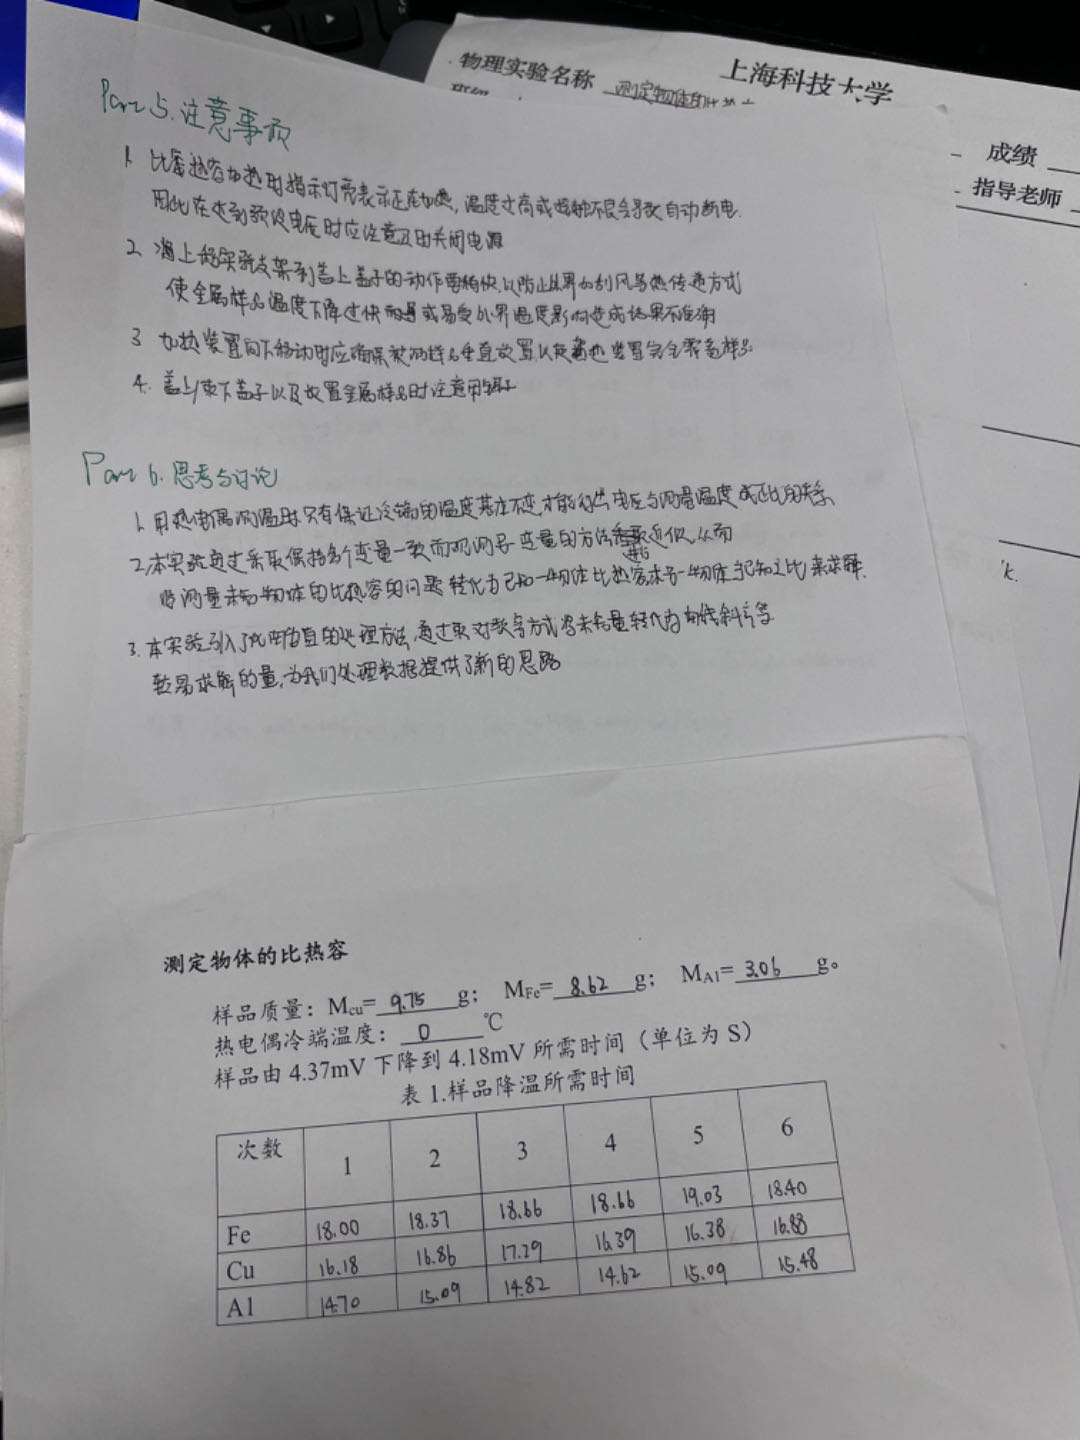 上海科技大学
物理实验名称 测定物体的比热
成绩
指导老师
Part 5. 注意事项
1. 比热容加热时指示灯亮表示正在加热,温度过高或接触不良会导致自动断电.
因此在达到预设电压时应注意及时关闭电源
2. 实验支架到盖上盖子的动作要稍快,以防止外界如刮风等热传递方式
使金属样品温度下降过快 或易受外界温度影响造成结果不准确
3. 加热装置向下移动时应确保被测样品垂直放置以及 装置完全套 样品
4. 盖上/取下盖子以及放置金属样品时注意用镊子
Part 6. 思考与讨论
1. 用热电偶测温时只有保证冷端的温度基本不变,才能 电压与测量温度成正比的关系
2. 本实验通过采取保持多个变量一致而 变量的方法进行近似,从而
将测量未知物体的比热容的问题转化为已知一物体比热容求另一物体与已知之比来求解.
3. 本实验引入了 的处理方法,通过取对数等方式将未知量转化为直线斜率等
较易求解的量,为我们处理数据提供了新的思路
测定物体的比热容
样品质量:Mcu= 9.75 g; MFe= 8.62 g; MAl= 3.06 g。
热电偶冷端温度: 0 ℃
样品由 4.37mV 下降到 4.18mV 所需时间(单位为 S)
表 1.样品降温所需时间
次数 1 2 3 4 5 6
Fe 18.00 18.37 18.66 18.66 19.03 18.40
Cu 16.18 16.86 17.29 16.39 16.38 16.88
Al 14.70 15.09 14.82 14.62 15.09 15.48